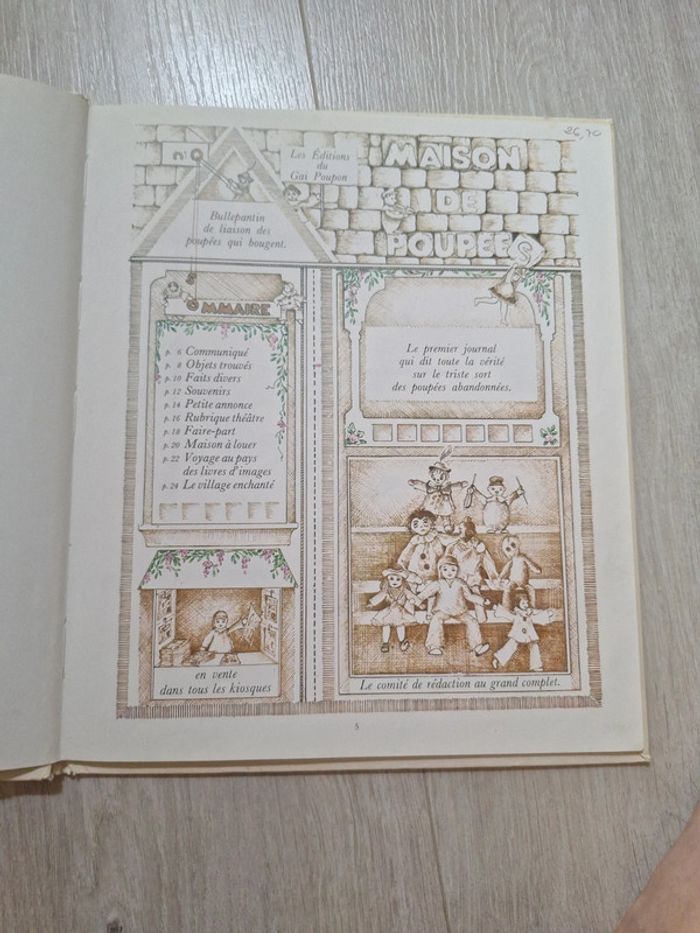 26,70
n°0
Les Éditions
du
Gai Poupon
MAISON
DE
POUPEES
Bullepantin
de liaison des
poupées qui bougent.
SOMMAIRE
p. 6 Communiqué
p. 8 Objets trouvés
p. 10 Faits divers
p. 12 Souvenirs
p. 14 Petite annonce
p. 16 Rubrique théâtre
p. 18 Faire-part
p. 20 Maison à louer
p. 22 Voyage au pays
des livres d'images
p. 24 Le village enchanté
en vente
dans tous les kiosques
Le premier journal
qui dit toute la vérité
sur le triste sort
des poupées abandonnées.
Le comité de rédaction au grand complet.
5